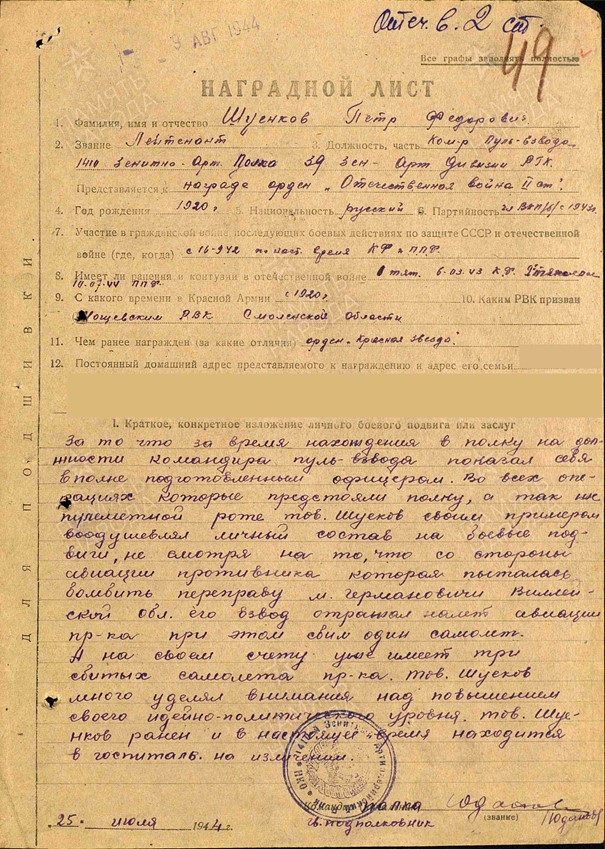 Отеч. в. 2 ст.
9 АВГ 1944
49
Все графы заполнять полностью
НАГРАДНОЙ ЛИСТ
1. Фамилия, имя и отчество Шуенков Петр Федорович
2. Звание Лейтенант 3. Должность, часть Ком-р Пуль-взвода
1410 Зенитно-Арт. Полка 39 Зен-Арт Дивизии РГК.
Представляется к награде орден „Отечественная война II ст".
4. Год рождения 1920г. 5. Национальность русский 6. Партийность чл ВКП(б) с 1943г.
7. Участие в гражданской войне, последующих боевых действиях по защите СССР и отечественной
войне (где, когда) с 16-942 по наст. время КФ и ППФ.
8. Имеет ли ранения и контузии в отечественной войне 6.03.43 К.Ф.
10.07.44 ППФ.
9. С какого времени в Красной Армии с 1920г. 10. Каким РВК призван
РВК Смоленской области
11. Чем ранее награжден (за какие отличия) орден „Красная звезда".
12. Постоянный домашний адрес представляемого к награждению и адрес его семьи
I. Краткое, конкретное изложение личного боевого подвига или заслуг
За то что за время нахождения в полку на дол-
жности командира пуль-взвода показал себя
вполне подготовленным офицером. Во всех опе-
рациях которые предстояли полку, а так же
пулеметной роте тов. Шуеков своим примером
воодушевлял личный состав на боевые под-
виги, не смотря на то, что со стороны
авиации противника которая пыталась
бомбить переправу м. Германовичи Вилей-
ской обл. его взвод отражал налет авиации
пр-ка при этом сбил один самолет.
А на своем счету уже имеет три
сбитых самолета пр-ка. тов. Шуеков
много уделял внимания над повышением
своего идейно-политического уровня. тов. Шуе-
нков ранен и в настоящее время находится
в госпитале на излечении.
командир полка
гв. подполковник (звание)
25. июля 1944 г.
ДЛЯ ПОДШИВКИ